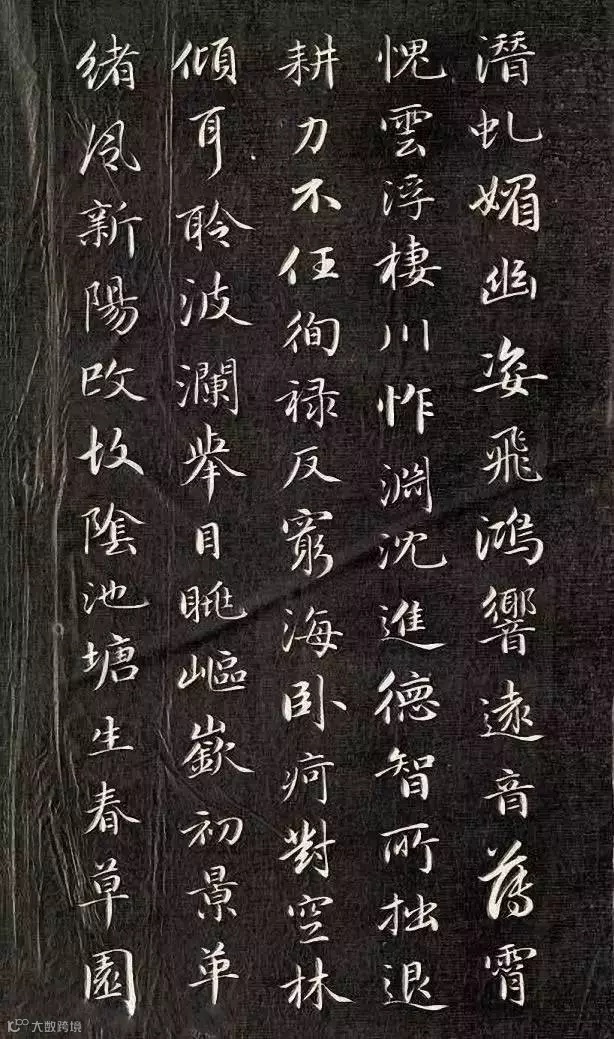 潛虬媚幽姿飛鴻響遠音薄霄
愧雲浮棲川怍淵沈進德智所拙退
耕力不任徇禄反窮海卧疴對空林
傾耳聆波瀾舉目眺嶇嶔初景革
緒風新陽改故陰池塘生春草園
大数跨境